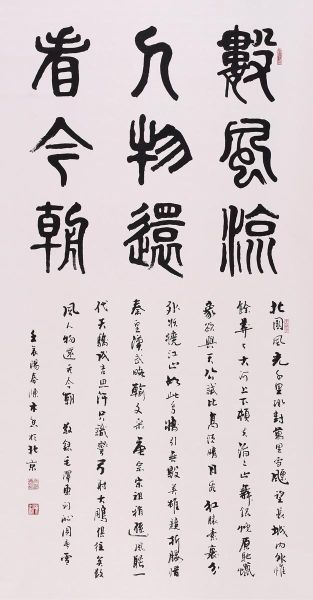 數風流
人物還
看今朝
北國風光千里冰封萬里雪飄望長城內外惟
餘莽々大河上下頓失滔々山舞銀蛇原馳蠟
象欲與天公試比高須晴日看紅裝素裹分
外妖嬈江山如此多嬌引無數英雄競折腰惜
秦皇漢武略輸文采唐宗宋祖稍遜風騷一
代天驕成吉思汗只識彎弓射大鵰俱往矣數
風人物還看今朝 敬錄毛澤東詞沁園春雪
壬辰陽春 書於北京